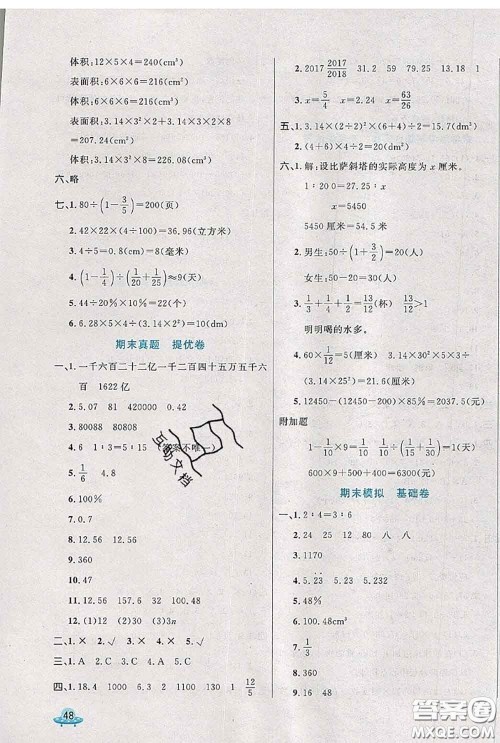 体积:12×5×4=240(cm³)
表面积:6×6×6=216(cm²)
体积:6×6×6=216(cm³)
表面积:3.14×3²×2+3.14×3×2×8
=207.24(cm²)
体积:3.14×3²×8=226.08(cm³)
六、略
七、1. 80÷(1-3/5)=200(页)
2. 42×22×4÷100=36.96(立方米)
3. 4÷5=0.8(米)=8(毫米)
4. (1-1/4)÷(1/20+1/25)≈9(天)
5. 44÷20%×10%=22(个)
6. 6.28×5×4÷3.14÷2²=10(dm)
期末真题 提优卷
一、1. 一千六百二十二亿一千二百四十五万五千六
百 1622亿
2. 5.07 81 420000 0.42
3. 80088 80808
4. 6 1∶3=5∶15
5. 1/6 4.8
6. 100%
7. 9
8. 100%
9. 360
10. 47
11. 1832.5
12. 12.56 37.68 100.48
13. (1)9 (2)30 (3)3n
二、1. × 2. √ 3. × 4. × 5. √
三、1. A 2. C 3. C 4. A 5. C
四、1. 18.4 1000 3.24 39 1 12/5
2. 2017 2017/2018 31.2 59 79.25 13.18 1
3. x=5/9 x=34.2 x=63/26
五、1. 3.14×(2÷2)²×2=6.28(dm³)
2. (4÷2)²÷2×(6+4)÷2=15(dm²)
六、1. 解:设比萨斜塔的实际高度为x厘米。
1∶200=27.25∶x
x=5450
5450厘米=54.5米
2. 男生:50÷(1+3/2)=20(人)
女生:50-20=30(人)
3. 1/3+1/4+1/2=13/12(杯) 13/12>1
明明喝的水多。
4. 1350÷90%=1500(元)
1500-1350=150(元)
5. 12450-(12450-10000)×85%=2037.5(元)
附加题
1-1/10×9=1/10 1/10÷(1/20+1/30+1/60)=1(天)
600×9+500+400=6300(元)
期末模拟 基础卷
一、1. 2∶4=3∶6
2. 30 12 24 80 八 八
3. 1170
4. 5.2 0.523 52.3% 0.52
5. 48%
6. 60
7. 1/3
8. 四
9. 360
48
互动文档
答案圈
MXQE.COM